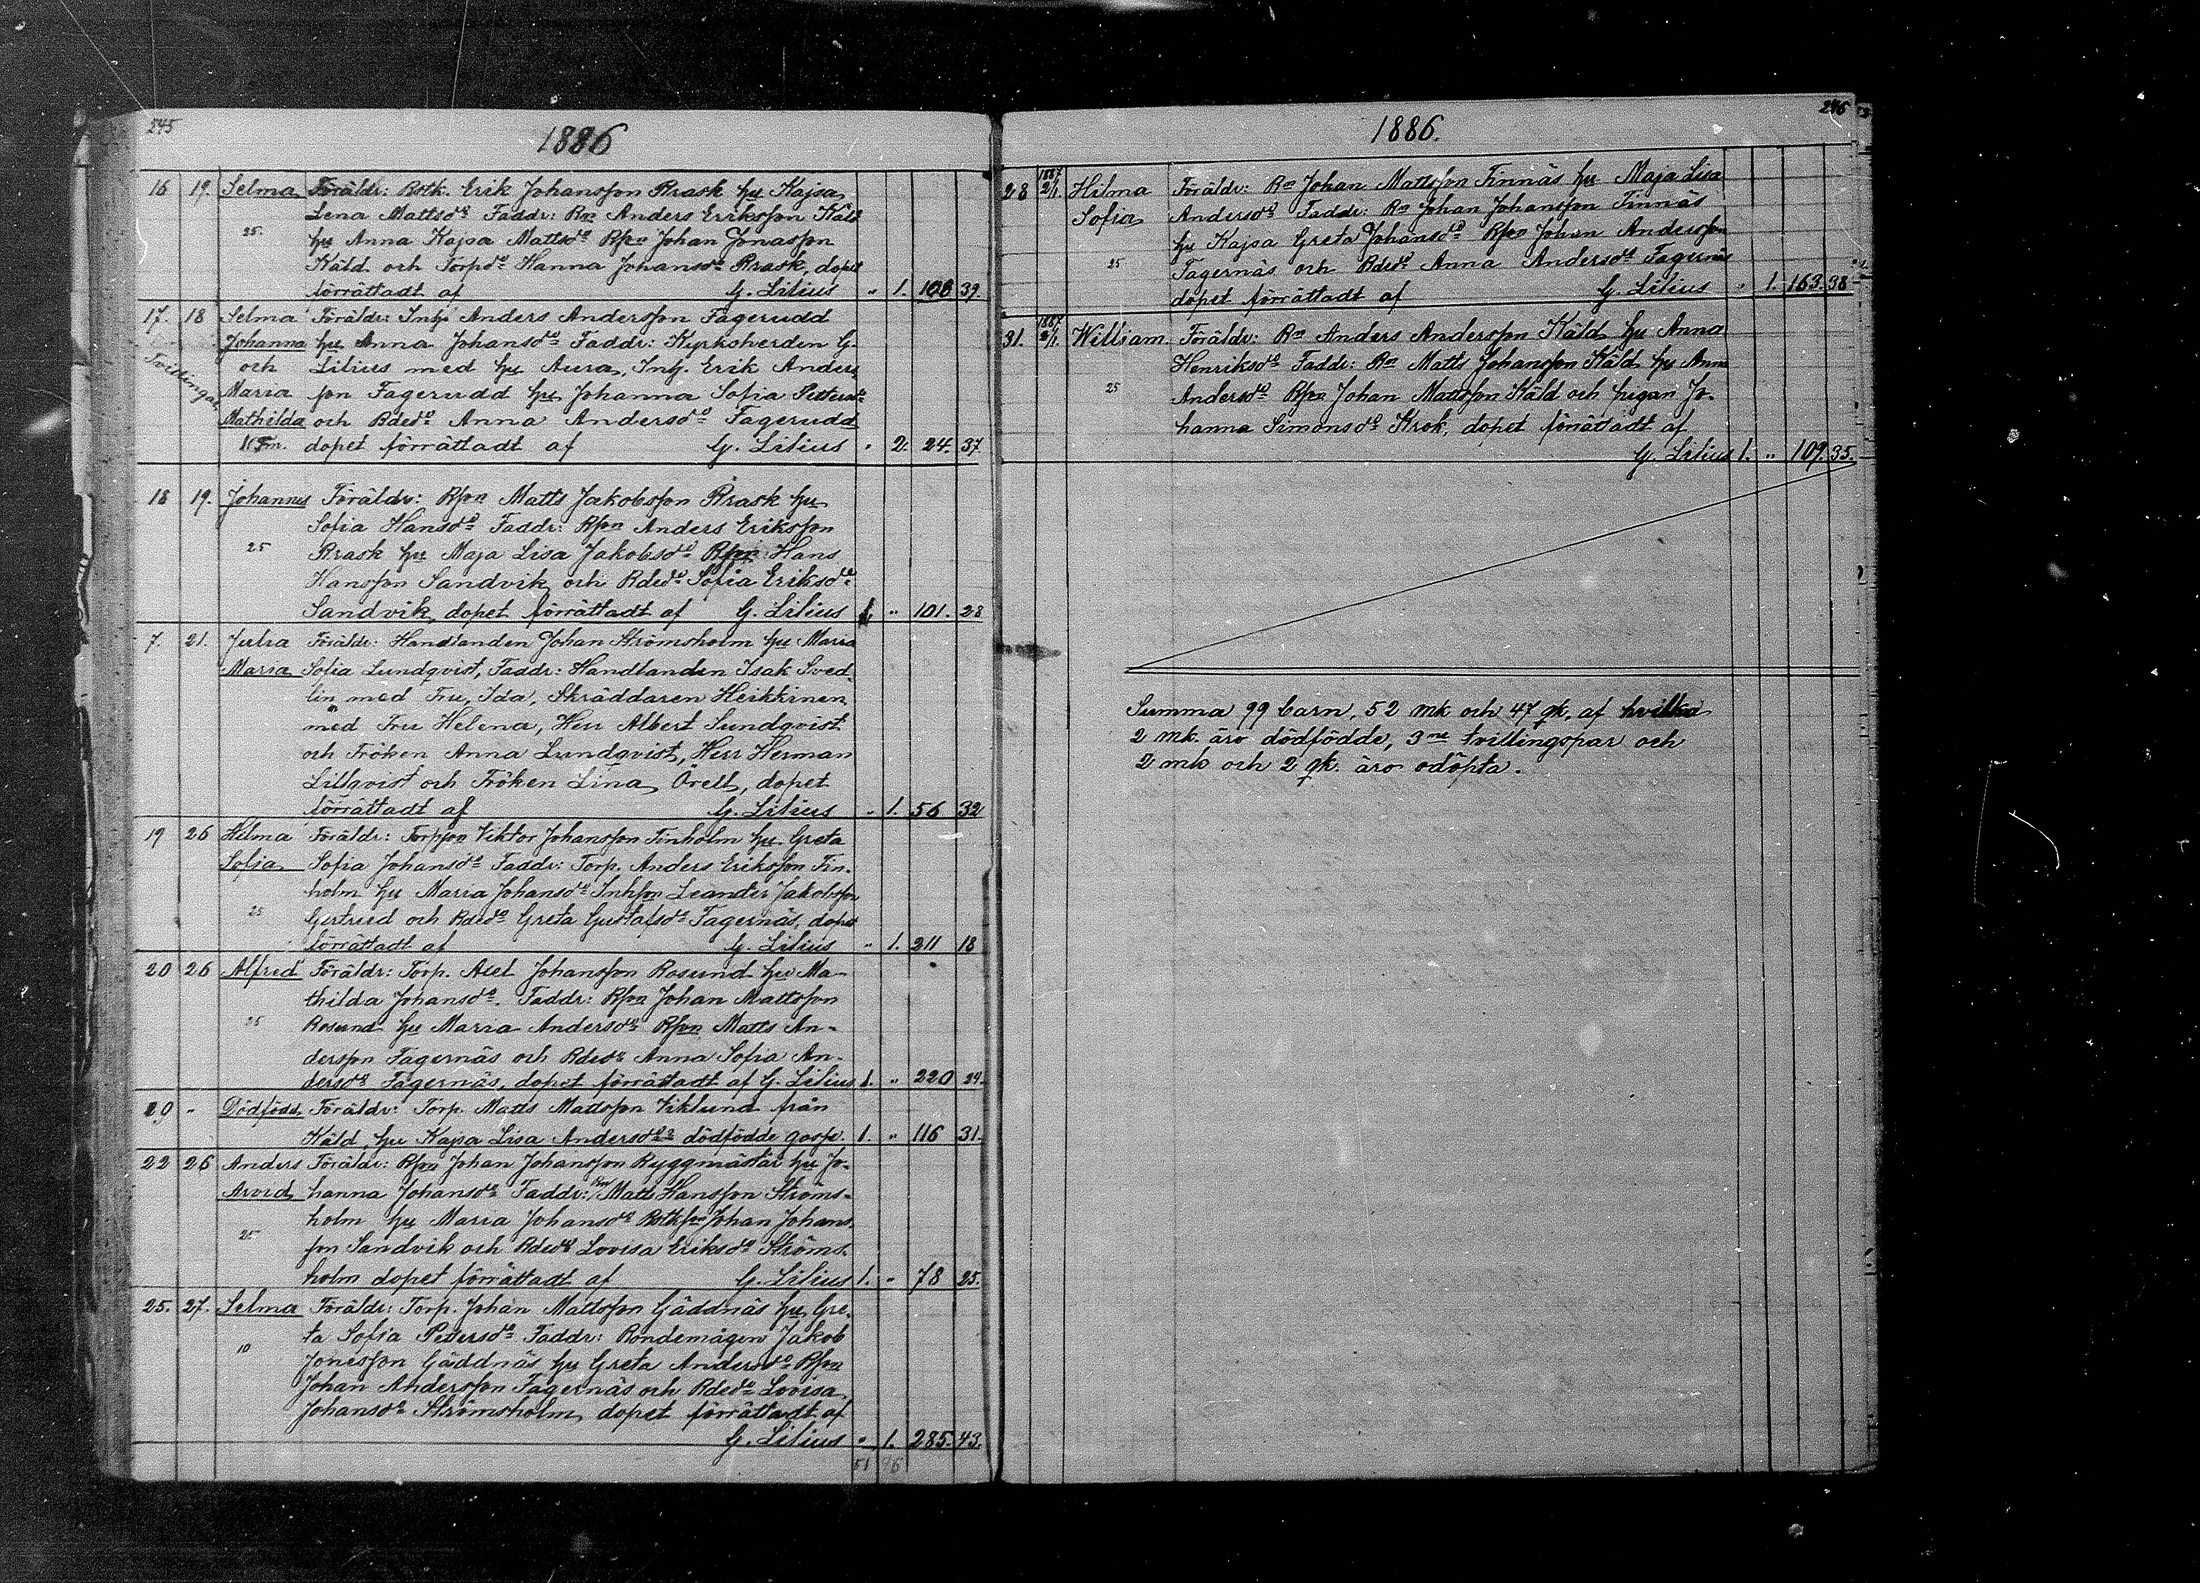 245
1886
16 19. Selma Föräldr: Botk. Erik Johansson Brask hu Kajsa
Lena Mattsdr Faddr: Bn Anders Eriksson Käld
25 hu Anna Kajsa Mattsdr Bson Johan Jonasson
Käld och Torpdr Hanna Johansdr Brask, dopet
förrättadt af G. Lilius " 1. 108 39.
17. 18 Selma Föräldr: Inhs Anders Andersson Fagerudd
Johanna hu Anna Johansdr Faddr: Kyrkoherden G.
Tvillingar och Lilius med hu Aura, Inh. Erik Anders
Maria son Fagerudd hu Johanna Sofia Pettersdr
Mathilda och Bdedr Anna Andersdr Fagerudd
dopet förrättadt af G. Lilius " 2. 24. 37.
18 19. Johannes Föräldr: Bson Matts Jakobsson Brask hu
Sofia Hansdr Faddr: Bson Anders Eriksson
25 Brask hu Maja Lisa Jakobsdr Bson Hans
Hansson Sandvik och Bdedr Sofia Eriksdr
Sandvik, dopet förrättadt af G. Lilius 1. " 101. 28
7. 21. Julia Föräldr: Handlanden Johan Strömsholm hu Maria
Maria Sofia Lundqvist, Faddr: Handlanden Isak Sved
lin med Fru, Ida, Skräddaren Heikkinen
med Fru Helena, Herr Albert Sundqvist
och Fröken Anna Lundqvist, Herr Herman
Lillqvist och Fröken Lina Orell, dopet
förrättadt af G. Lilius " 1. 56 32
19 26 Hilma Föräldr: Torpson Viktor Johansson Finholm hu Greta
Sofia Sofia Johansdr Faddr: Torp. Anders Eriksson Fin-
holm hu Maria Johansdr Inhson Leander Jakobsson
25 Gertrud och Bdedr Greta Gustafsdr Fagernäs, dopet
förrättadt af G. Lilius " 1. 211 18
20 26 Alfred Föräldr: Torp. Axel Johansson Rosund hu Ma-
thilda Johansdr. Faddr: Bson Johan Mattsson
25 Rosund hu Maria Andersdr Bson Matts An-
dersson Fagernäs och Bdedr Anna Sofia An-
dersdr Fagernäs, dopet förrättadt af G. Lilius 1. " 220 24.
29 " Dödfödd Föräldr: Torp. Matts Mattsson Viklund från
Käld hu Kajsa Lisa Andersdrs dödfödde gosse. 1. " 116 31.
22 26 Anders Föräldr: Bson Johan Johansson Byggmästar hu Jo-
Arvid hanna Johansdr Faddr: Bn Matts Hansson Ströms-
holm hu Maria Johansdr Botkson Johan Johans
25 son Sandvik och Bdedr Lovisa Eriksdr Ströms-
holm dopet förrättadt af G. Lilius 1. " 78 25.
25. 27. Selma Föräldr: Torp. Johan Mattsson Gäddnäs hu Gre-
ta Sofia Pettersdr Faddr: Bondemågen Jakob
10 Jonesson Gäddnäs hu Greta Andersdr Bson
Johan Andersson Fagernäs och Bdedr Lovisa
Johansdr Strömsholm, dopet förrättadt af
G. Lilius " 1. 285. 43.
51
246
1886.
28 1887 2/1. Hilma Föräldr: Bn Johan Mattsson Finnäs hu Maja Lisa
Sofia Andersdr Faddr: Bn Johan Johansson Finnäs
hu Kajsa Greta Johansdr Bson Johan Andersson
25 Fagernäs och Bdedr Anna Andersdr Fagernäs
dopet förrättadt af G. Lilius " 1. 163. 38.
31. 1887 2/1. William Föräldr: Bn Anders Andersson Käld hu Anna
Henriksdr Faddr: Bn Matts Johansson Käld hu Anna
25 Andersdr Bson Johan Mattsson Käld och pigan Jo-
hanna Simonsdr Krok, dopet förrättadt af
G. Lilius 1. " 109. 35.
Summa 99 barn, 52 mk och 47 qk. af hvilka
2 mk. äro dödfödde, 3ne tvillingspar och
2 mk och 2 qk. äro odöpta.